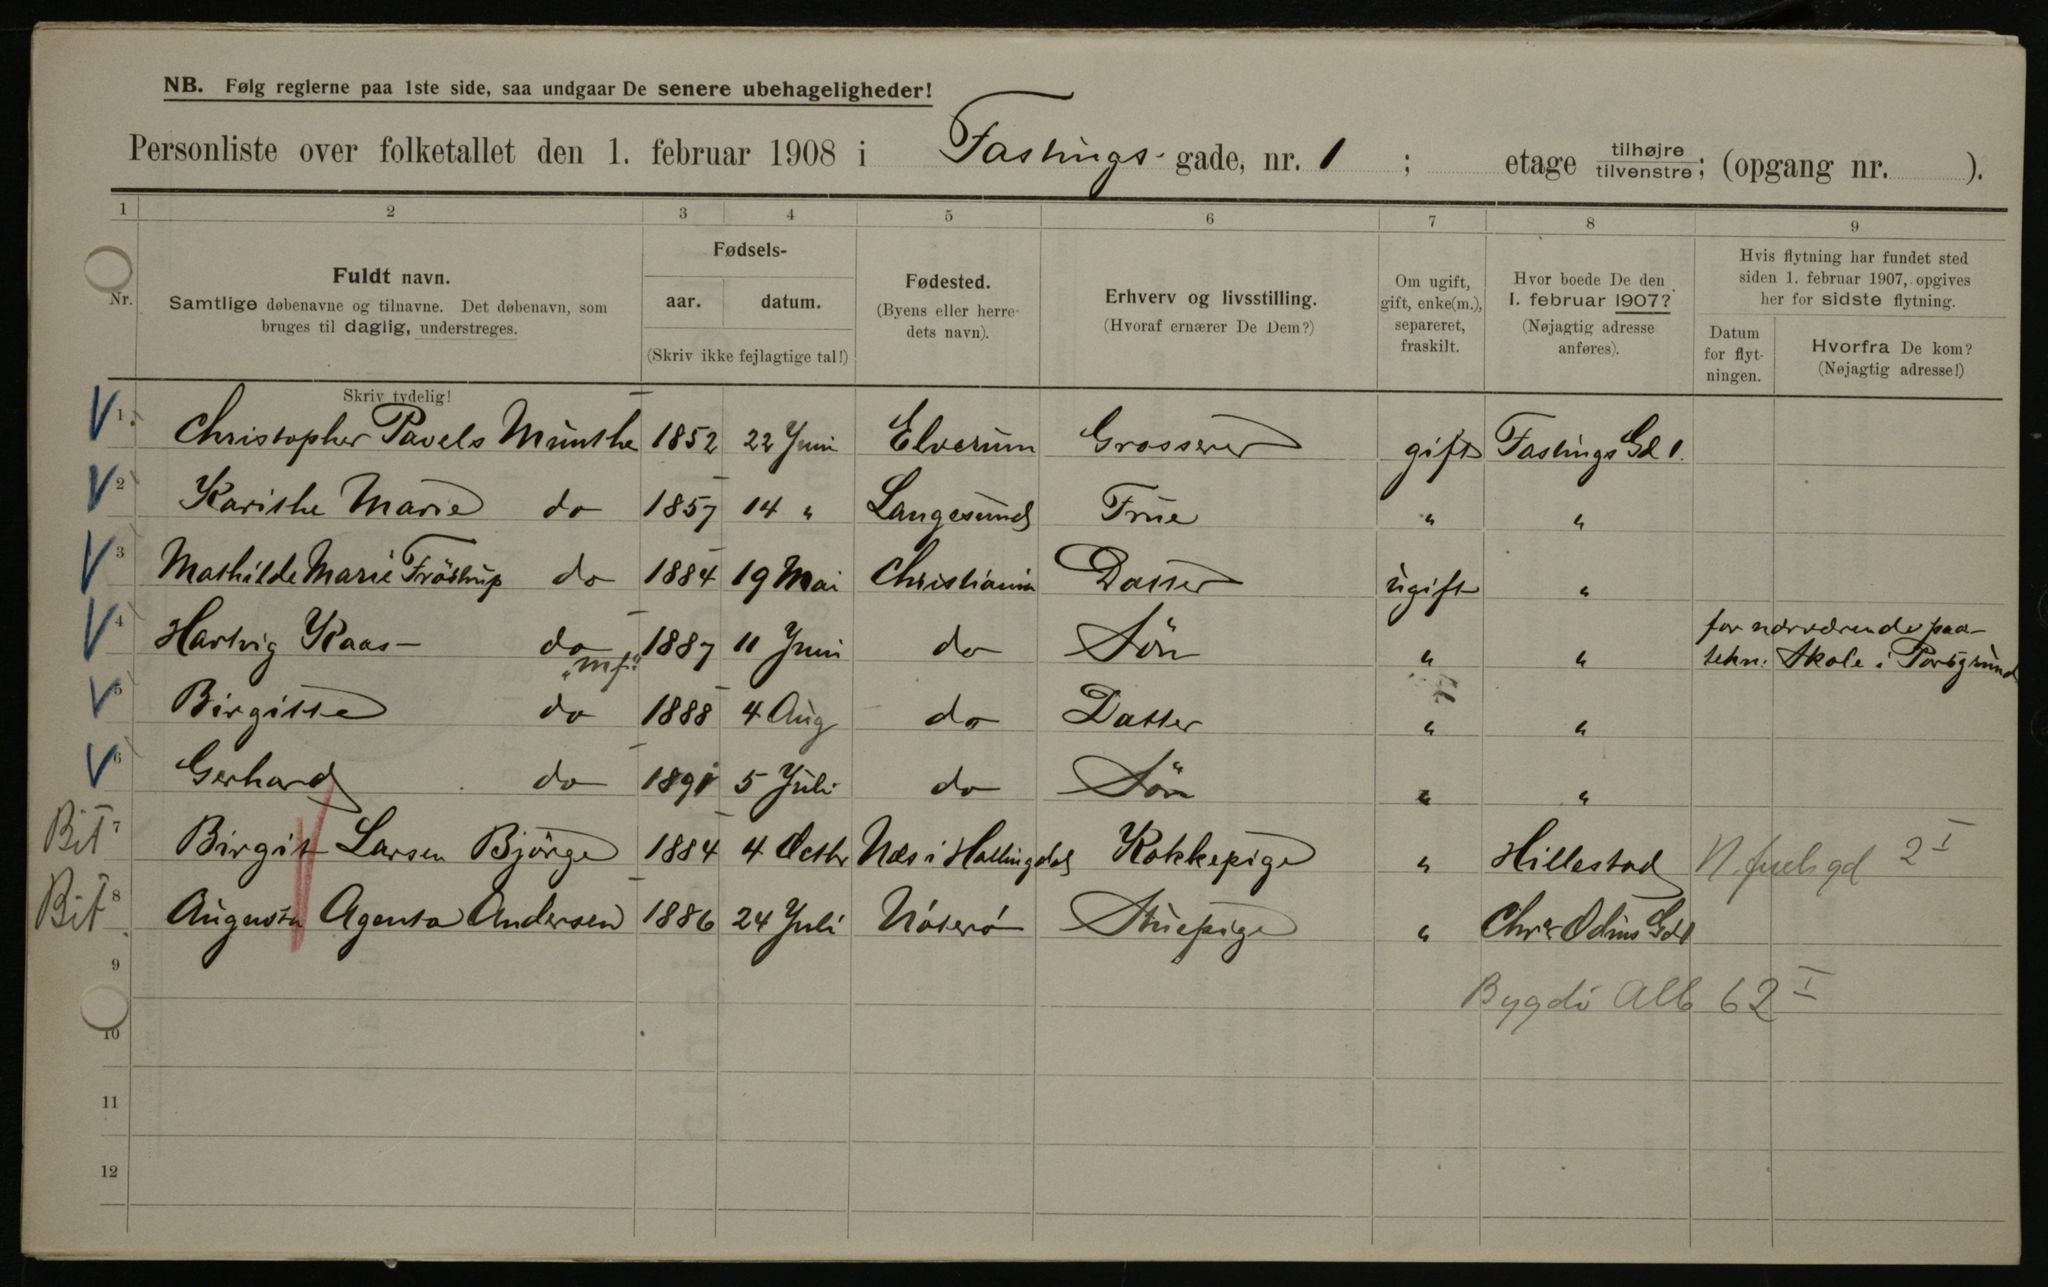 NB. Følg reglerne paa 1ste side, saa undgaar De senere ubehageligheder!
Personliste over folketallet den 1. februar 1908 i Fastings gade, nr. 1 ; etage tilhøjre/tilvenstre; (opgang nr. ).
1 2 3 4 5 6 7 8 9
Nr.
Fuldt navn.
Samtlige døbenavne og tilnavne. Det døbenavn, som
bruges til daglig, understreges.
Fødsels-
aar. datum.
(Skriv ikke fejlagtige tal!)
Fødested.
(Byens eller herre-
dets navn).
Erhverv og livsstilling.
(Hvoraf ernærer De Dem?)
Om ugift,
gift, enke(m.),
separeret,
fraskilt.
Hvor boede De den
1. februar 1907?
(Nøjagtig adresse
anføres).
Hvis flytning har fundet sted
siden 1. februar 1907, opgives
her for sidste flytning.
Datum
for flyt-
ningen.
Hvorfra De kom?
(Nøjagtig adresse!)
Skriv tydelig!
V 1 Christopher Pavels Münthe 1852 22 Juni Elverum Grosserer gift Fastings Gd 1.
V 2 Karithe Marie do 1857 14 " Langesund Frue " "
V 3 Mathilde Marie Fröstrup do 1884 19 Mai Christiania Datter ugift "
V 4 Hartvig Kaas do 1887 11 Juni do Sön " " for nærværende paa
tekn. Skole i Porsgrund
"mf."
V 5 Birgitte do 1888 4 Aug do Datter " "
V 6 Gerhard do 1891 5 Juli do Sön " "
Bit 7 Birgit Larsen Bjørge 1884 4 Octbr Næs i Hallingdal Kokkepige " Hillestad 2 I
Bit 8 Augusta Agenta Andersen 1886 24 Juli Nöterö Stuepige " Odins Gd 1
9
Bygdö Allé 62 I
10
11
12